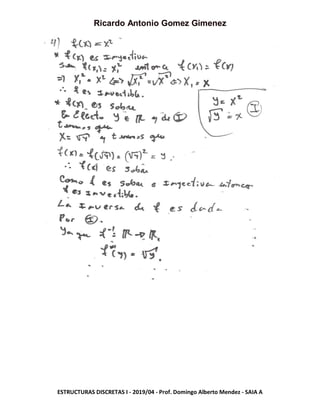 Ricardo Antonio Gomez Gimenez
4) f(x) = x²
* f(x) es Inyectiva
Sea f(x₁) = x₁² entonce f(x₁) = f(x)
=> x₁² = x² <=> √x₁² = √x² => x₁ = x
∴ f es Invectible.
y = x²
√y = x Ⓘ
* f(x) es sobre
En Efecto y ∈ ℝ y de Ⓘ
tenemos que
x = √y y tenemos que
f(x) = f(√y) = (√y)² = y.
∴ f(x) es sobre
Como f es sobre e Inyectiva entonce
f es Invectible.
La Inversa de f es dada
Por Ⓘ.
f⁻¹: ℝ → ℝ,
f⁻¹(y) = √y
ESTRUCTURES DISCRETAS I - 2019/04 - Prof. Domingo Alberto Mendez - SAIA A